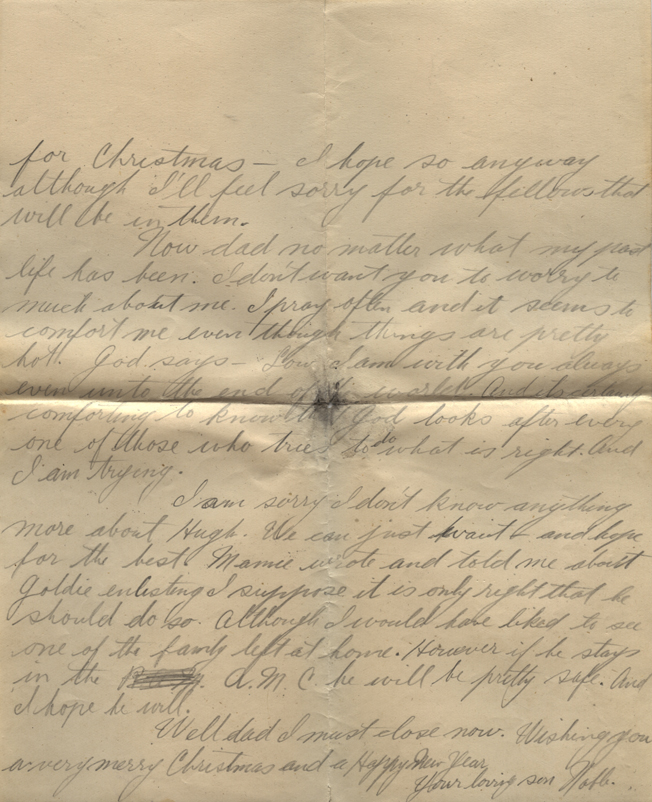 for Christmas — I hope so anyway
although I'll feel sorry for the fellows that
will be in them.
Now dad no matter what my past
life has been. I don't want you to worry to
much about me. I pray often and it seems to
comfort me even though things are pretty
hot. God says — "Low I am with you always
even unto the end of world And it
comforting to know God looks after every
one of those who tries to do what is right. And
I am trying.
I am sorry I don't know anything
more about Hugh. We can just wait — and hope
for the best. Mamie wrote and told me about
Goldie enlisting I suppose it is only right that he
should do so. Although I would have liked to see
one of the family left at home. However if he stays
in the A.M.C. he will be pretty safe. And
I hope he will.
Well dad I must close now. Wishing you
a very merry Christmas and a Happy New Year,
Your loving son Noble.